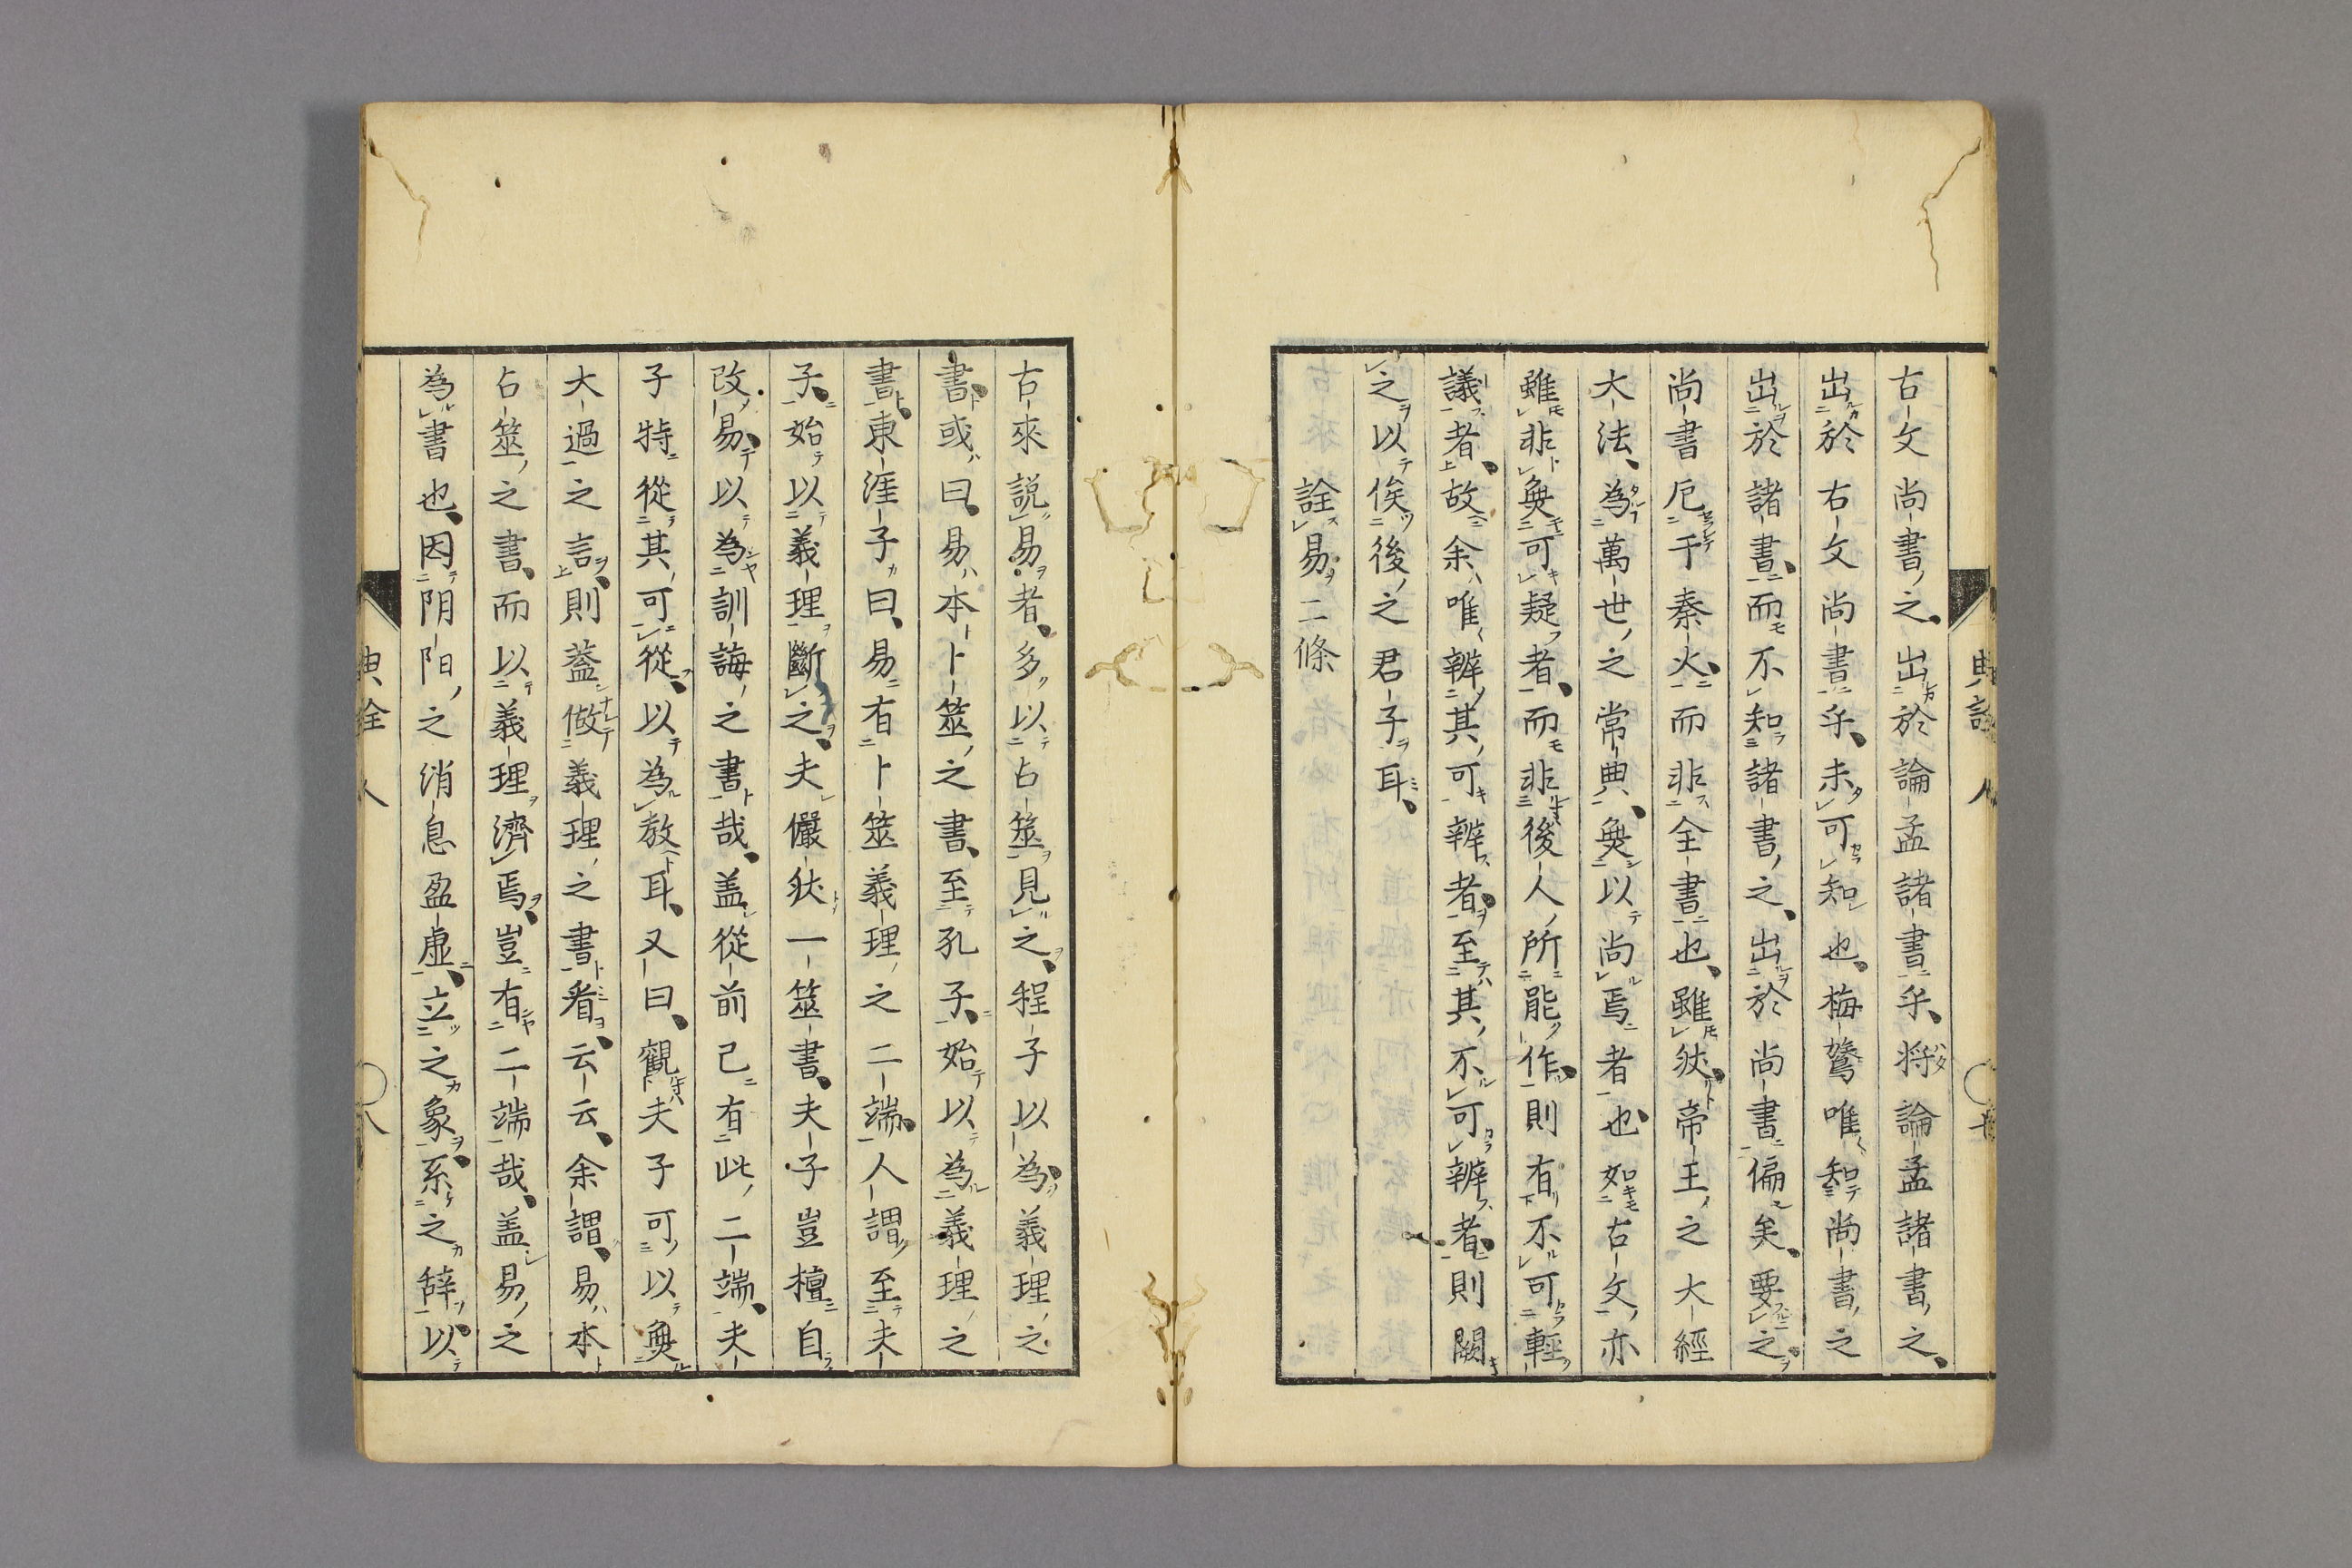 古文尚書之、出於論孟諸書乎、将論孟諸書之、
出於右文尚書乎、未可知也、梅鷟唯知尚書之
出於諸書、而不知諸書之、出於尚書偏矣、要之
尚書厄于秦火、而非全書也、雖然、帝王之大經
大法、為萬世之常典、無以尚焉者也、如古文亦
雖非無可疑者、而非後人所能作、則有不可輕
議者、故余唯辨其可辨者、至其不可辨者、則闕
之以俟後之君子耳、
詮易二條
古來説易者、多以占筮見之、程子以為義理之
書、或曰、易本卜筮之書、至孔子、始以為義理之
書、東涯子曰、易有卜筮義理之二端、人謂至夫
子、始以義理斷之、夫儼然一筮書、夫子豈擅自
改易、以為訓誨之書哉、盖從前已有此二端、夫
子特從其可從、以為教耳、又曰、觀夫子可以無
大過之言、則蓋做義理之書看、云云、余謂、易本
占筮之書、而以義理濟焉、豈有二端哉、盖易之
為書也、因阴阳之消息盈虛、立之象、系之辞、以
典詮
八